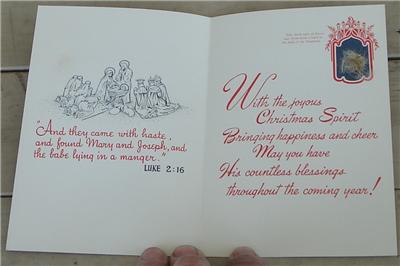 "And they came with haste,
and found Mary and Joseph, and
the babe lying in a manger."
LUKE 2:16
With the joyous
Christmas Spirit
Bringing happiness and cheer
May you have
His countless blessings
throughout the coming year!